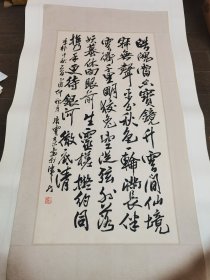 皓魄當空寶鏡升雲間仙
寂無聲平分秋色一輪滿長伴
雲衢千里明狡兔空從弦外落
妖蟆休向眼前生靈槎擬約同
攜手更待銀河徹底清